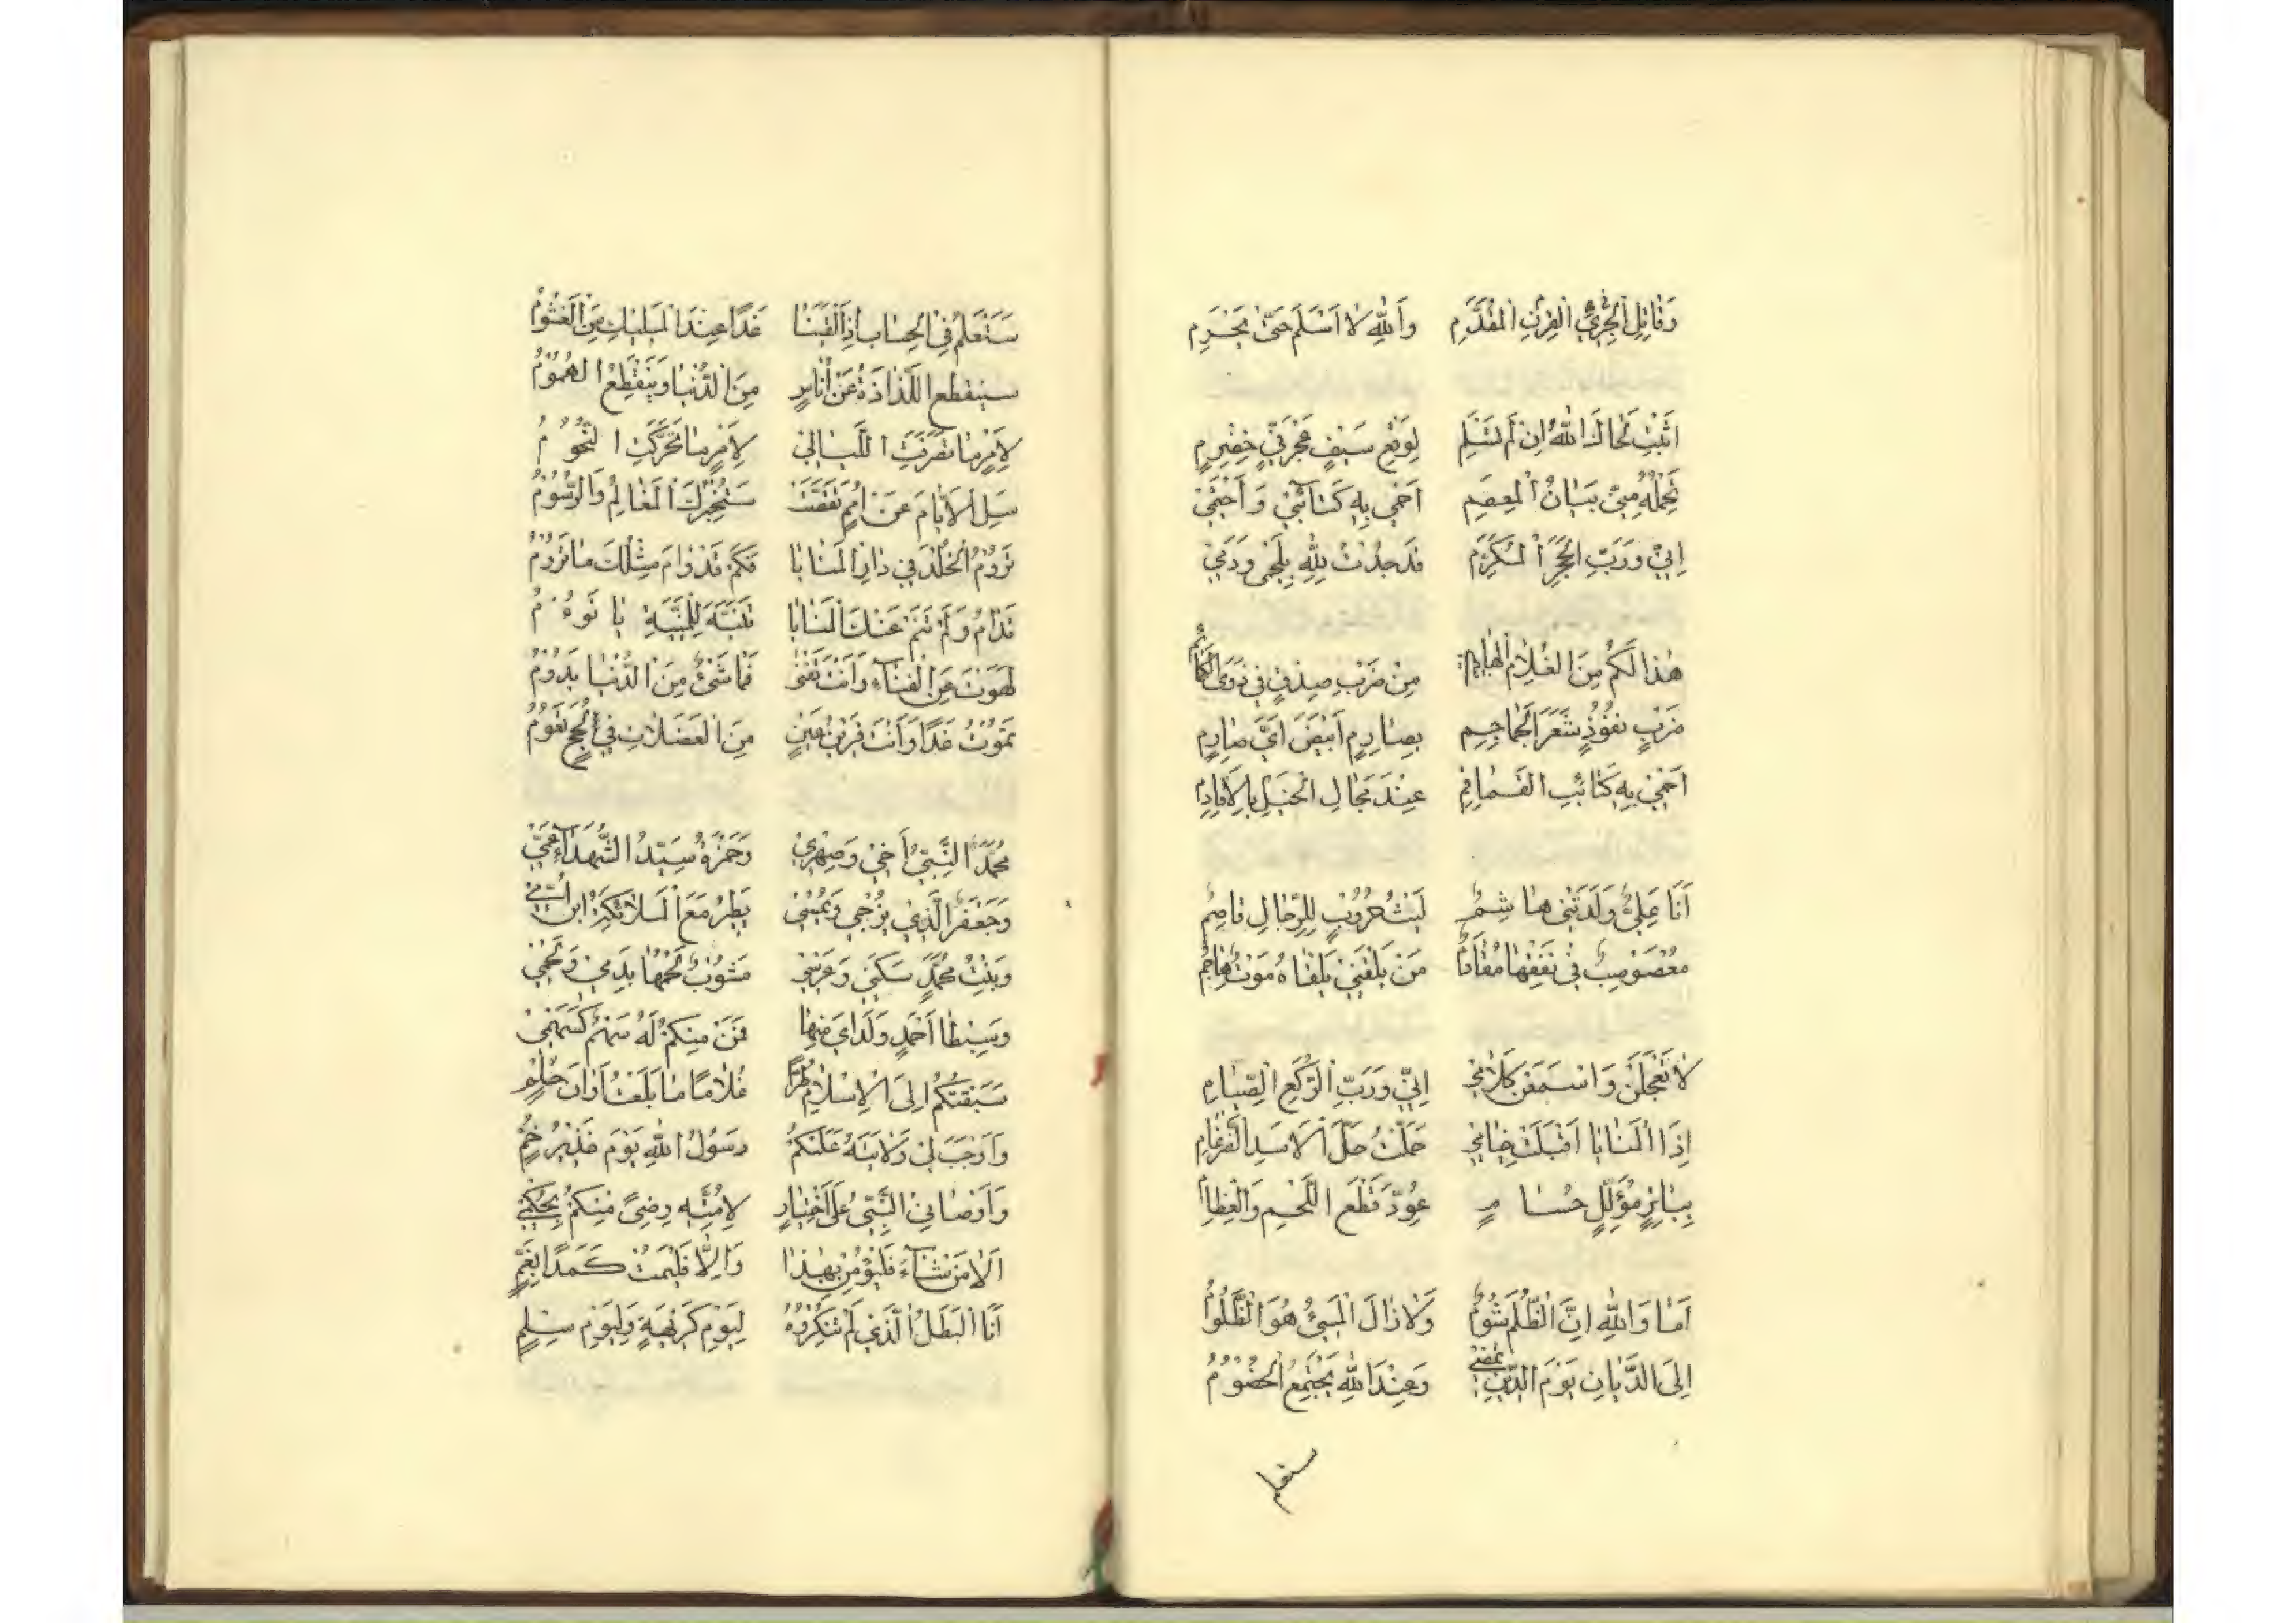 وَقَاتِلِ الْجَرِيِّ الْقِرْنِ الْمُقَدَّمِ وَاللهِ لَا أَسْلَمَ حَتَّى
اثْبُتْ لَحَاكَ اللهُ اِنْ لَمْ تُسْلِمِ لِوَقْعِ سَيْفٍ عَجْرَفِيٍّ خِضْرِمِ
تَحْمِلُهُ مِنِّي بَنَانُ الْمِعْصَمِ اَحْمِي بِهِ كَتَائِبِي وَ اَحْتَمِي
اِنِّي وَرَبِّ الْحَجَرِ الْمُكَرَّمِ قَدْ جُدْتُ لِلّهِ بِلَحْمِي وَدَمِي
هٰذَا لَكُمْ مِنَ الْغُلَامِ الْهَاشِمِي مِنْ ضَرْبِ صِدْقٍ فِي ذَوِي الْكَمَائِمِ
ضَرْبٍ نُفُوذٍ شَعَرَ الْجَمَاجِمِ بِصَارِمٍ اَبْيَضَ اَيِّ صَارِمِ
اَحْمِي بِهِ كَتَائِبَ الْقَمَاقِمِ عِنْدَ مَجَالِ الْخَيْلِ بِالْاَقَادِمِ
اَنَا عَلِيٌّ وَلَدَتْنِي هَاشِمُ لَيْثُ حُرُوبٍ لِلرِّجَالِ قَاصِمُ
مُعْصَوْصِبٌ فِي نَقْعِهَا مَنْ يَلْقَنِي يَلْقَاهُ مَوْتٌ هَاجِمُ
لَا تَعْجَلَنَّ وَاسْمَعَنْ كَلَامِي اِنِّي وَرَبِّ الرُّكَّعِ الصِّيَامِ
اِذَا الْمَنَايَا اَقْبَلَتْ خِيَامِي حَمَلْتُ حَمْلَ الْاَسَدِ الضِّرْغَامِ
بِبَاتِرٍ مُؤَلَّلٍ حُسَامِ عُوِّدَ قَطْعَ اللَّحْمِ وَالْعِظَامِ
اَمَا وَاللهِ اِنَّ الظُّلْمَ شُومٌ وَلَا زَالَ الْمُسِيئُ هُوَ الظَّلُومُ
اِلَى الدَّيَّانِ يَوْمَ الدِّينِ نَمْضِي وَعِنْدَ اللهِ يَجْتَمِعُ الْخُصُومُ
ستعلم
سَتَعْلَمُ فِي الْحِسَابِ اِذَا الْتَقَيْنَا غَدًا عِنْدَ الْمَلِيكِ مَنِ الْغَشُومُ
سينقطع اللَّذَاذَةُ عَنْ اُنَاسٍ مِنَ الدُّنْيَا وَيَنْقَطِعُ الْهُمُومُ
لِاَمْرٍ مَا تَصَرَّفَتِ اللَّيَالِي لِاَمْرٍ مَا تَحَرَّكَتِ النُّجُومُ
سَلِ الْاَيَّامَ عَنْ اُمَمٍ تَقَضَّتْ سَتُخْبِرُكَ الْمَعَالِمُ وَالرُّسُومُ
تَرُومُ الْخُلْدَ فِي دَارِ الْمَنَايَا فَكَمْ قَدْ رَامَ مِثْلُكَ مَا تَرُومُ
تَنَامُ وَلَمْ تَنَمْ عَنْكَ الْمَنَايَا تَنَبَّهْ لِلْمَنِيَّةِ يَا نَوُومُ
لَهَوْتَ عَنِ الْفَنَاءِ وَاَنْتَ تَفْنَى فَمَا شَيْءٌ مِنَ الدُّنْيَا يَدُومُ
تَمُوتُ غَدًا وَاَنْتَ قَرِيرُ عَيْنٍ مِنَ الْعَضَلَاتِ فِي لُجَجٍ تَعُومُ
مُحَمَّدٌ النَّبِيُّ اَخِي وَصِهْرِي وَحَمْزَةُ سَيِّدُ الشُّهَدَاءِ عَمِّي
وَجَعْفَرٌ الَّذِي يُضْحِي وَيُمْسِي يَطِيرُ مَعَ الْمَلَائِكَةِ ابْنُ اُمِّي
وَبِنْتُ مُحَمَّدٍ سَكَنِي وَعِرْسِي مَشُوبٌ لَحْمُهَا بِدَمِي وَلَحْمِي
وَسِبْطَا اَحْمَدٍ وَلَدَايَ مِنْهَا فَمَنْ مِنْكُمْ لَهُ سَهْمٌ كَسَهْمِي
سَبَقْتُكُمُ اِلَى الْاِسْلَامِ طُرًّا غُلَامًا مَا بَلَغْتُ اَوَانَ حُلْمِي
وَاَوْجَبَ لِي وَلَايَتَهُ عَلَيْكُمْ رَسُولُ اللهِ يَوْمَ غَدِيرِ خُمٍّ
وَاَوْصَانِي النَّبِيُّ عَلَى اخْتِيَارٍ لِاُمَّتِهِ رِضًى مِنْكُمْ بِحُكْمِي
اَلَا مَنْ شَاءَ فَلْيُؤْمِنْ بِهٰذَا وَاِلَّا فَلْيَمُتْ كَمَدًا بِغَمٍّ
اَنَا الْبَطَلُ الَّذِي لَمْ تُنْكِرُوهُ لِيَوْمِ كَرِيهَةٍ وَلِيَوْمِ سِلْمٍ